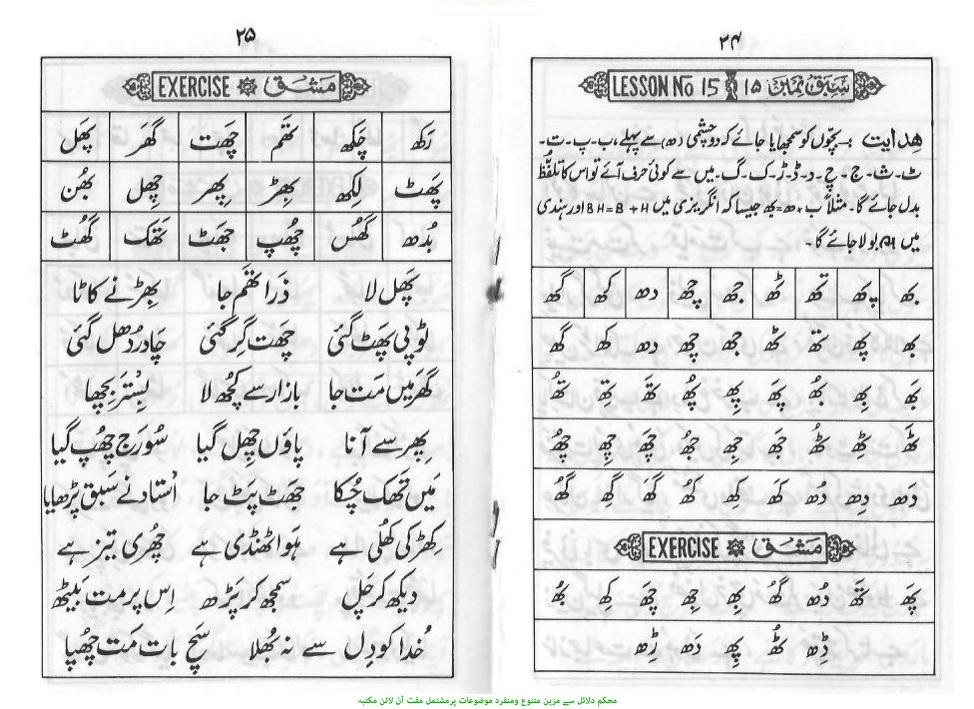 ۲۴
LESSON No 15 سبق نمبر ۱۵
ھدایت :۔ بچوں کو سمجھایا جائے کہ دو چشمی (ھ) سے پہلے، ب۔ پ۔ ت۔
ٹ۔ ث۔ ج۔ چ۔ د۔ ڈ۔ ڑ۔ ک۔ گ۔ میں سے کوئی حرف آئے تو اس کا تلفظ
بدل جائے گا۔ مثلاً ب + ھ = بھ جیسا کہ انگریزی میں BH=B+H اور ہندی
میں بولا جائے گا۔
بھ پھ تھ ٹھ جھ چھ دھ کھ گھ
بھ پھ تھ ٹھ جھ چھ دھ کھ گھ
بَھ بِھ بُھ پَھ پِھ پُھ تَھ تِھ تُھ
ٹَھ ٹِھ ٹُھ جَھ جِھ جُھ چَھ چِھ چُھ
دَھ دِھ دُھ کَھ کِھ کُھ گَھ گِھ گُھ
EXERCISE مشق
پَھ تَھ دُھ گُھ بِھ جِھ چَھ کِھ بُھ
ڈِھ کُھ پِھ دَھ ڑِھ
۲۵
EXERCISE مشق
رَکھ چَکھ تَھم چَھت گَھر پَھل
پَھٹ لِکھ بِھڑ پِھر چِھل بُھن
بُدھ گُھس چُھپ جَھٹ تَھک گُھٹ
پَھل لا ذَرا تَھم جا بِھڑ نے کاٹا
ٹوپی پَھٹ گئی چَھت گِر گئی چادر دُھل گئی
گَھر میں مَت جا بازار سے کُچھ لا بِستَر بِچھا
پِھر سے آنا پاؤں چِھل گیا سُورَج چُھپ گیا
مَیں تَھک چُکا جَھٹ پَٹ جا اُستاد نے سَبق پڑھایا
کِھڑکی کُھلی ہے ہَوا ٹھنڈی ہے چُھری تیز ہے
دیکھ کر چَل سمجھ کر پَڑھ اِس پر مت بیٹھ
خُدا کو دِل سے نہ بُھلا سَچ بات مَت چُھپا
محکم دلائل سے مزین متنوع ومنفرد موضوعات پرمشتمل مفت آن لائن مکتبہ